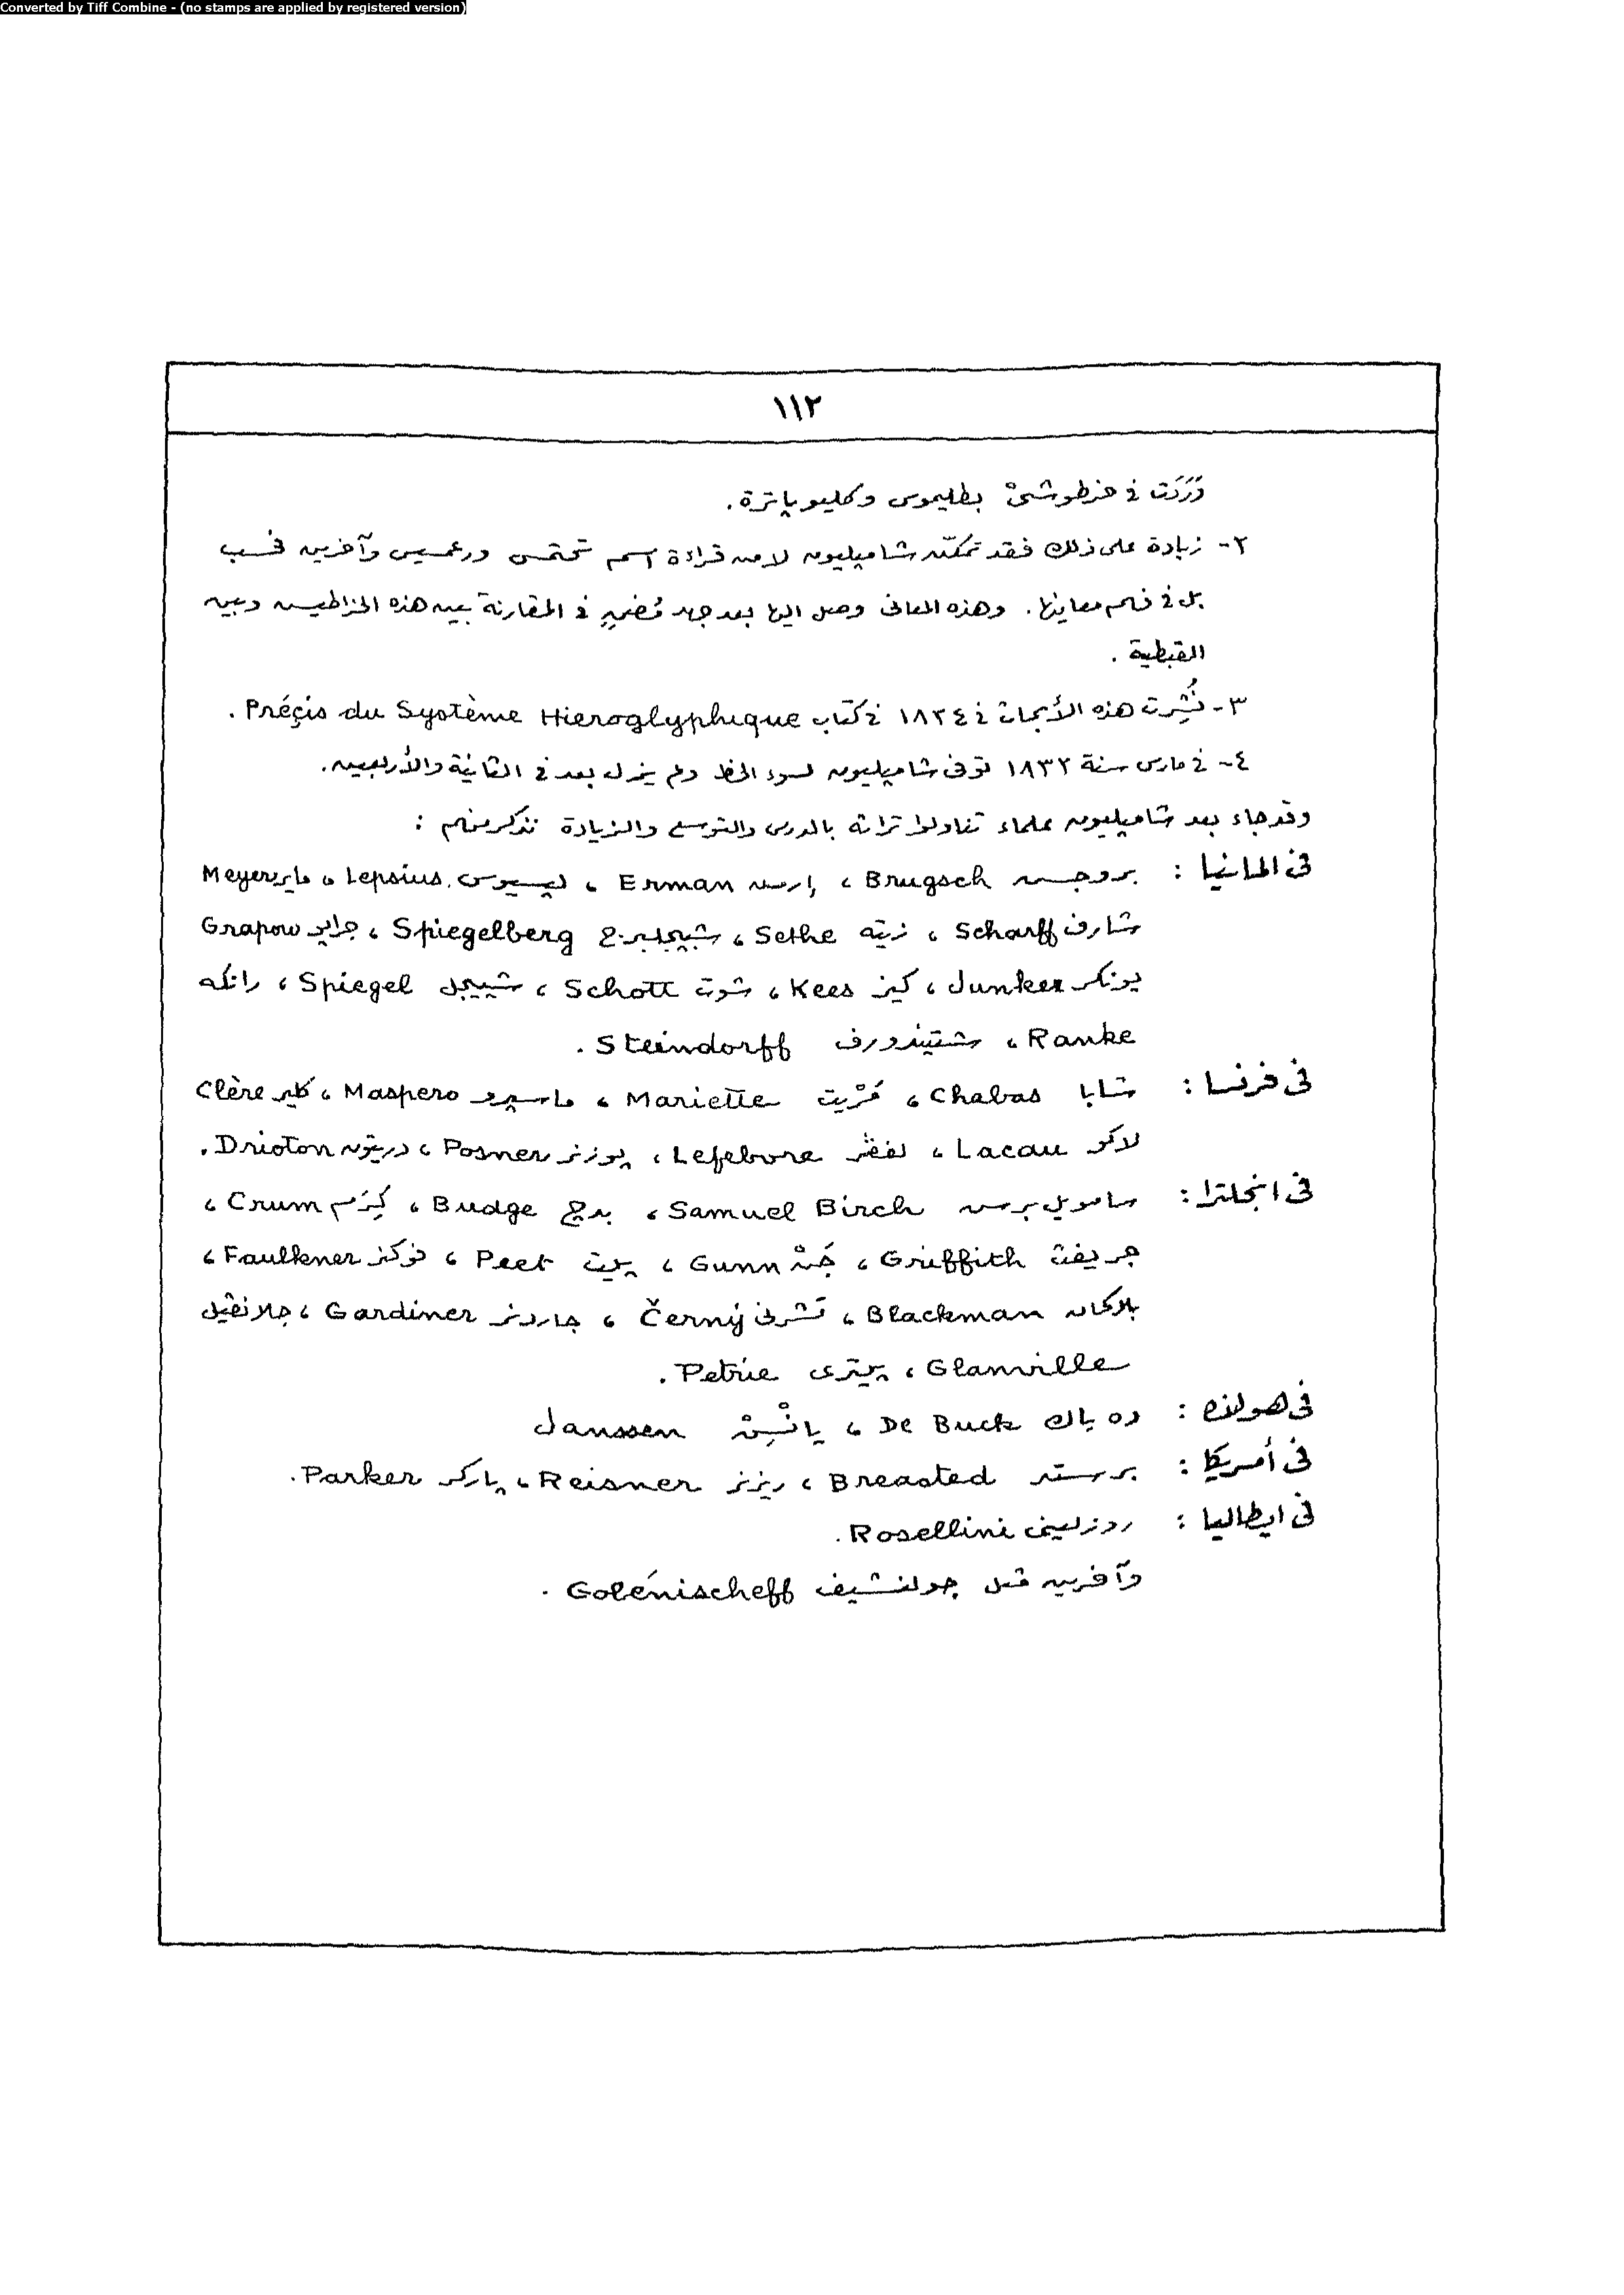 Converted by Tiff Combine - (no stamps are applied by registered version)
١١٢
وَرَدَت فى خرطوشىْ بطليموس وكليوپاترة.
٢- زيادة على ذلك فقد تمكّن شامپليون لا من قراءة اسم تحتمس ورعمسيس وآخرين فحسب
بل فى فهم معاينها. وهذه المعانى وصل اليها بعد جهد مُضنٍ فى المقارنة بين هذه الخراطيش وبين
القبطية.
٣- نُشِرت هذه الأبحاث فى ١٨٢٤ فى كتاب Préçis du Système Hieroglyphique.
٤- فى مارس سنة ١٨٣٢ توفى شامپليون لسوء الحظ ولم يزل بعد فى الثانية والأربعين.
وقد جاء بعد شامپليون علماء تناولوا تراثه بالدرس والتوسع والزيادة نذكر منهم :
فى المانيا : بروجش Brugsch ، إرمن Erman ، لپسيوس Lepsius ، ماير Meyer
شارف Scharff ، زيته Sethe ، شپيجلبرج Spiegelberg ، جراپو Grapow
يونكر Junker ، كيز Kees ، شوت Schott ، شپيجل Spiegel ، رانكه
Ranke ، شتيندورف Steindorff .
فى فرنسا : شابا Chabas ، مَرْيت Mariette ، ماسپرو Maspero ، كلير Clère
لاكو Lacau ، لفڤر Lefebvre ، پوزنر Posner ، دريتون Drioton .
فى انجلترا : صامويل برش Samuel Birch ، بدج Budge ، كِرَم Crum ،
جريفث Griffith ، جَنْ Gunn ، پيت Peet ، فوكنر Faulkner ،
بلاكمان Blackman ، تشرنى Černý ، جاردنر Gardiner ، جلانڤيل
Glanville ، پيترى Petrie .
فى هولنده : ده باك De Buck ، يانْسِنْ Janssen
فى أمريكا : برستد Breasted ، ريزنر Reisner ، پاركر Parker .
فى ايطاليا : روزلينى Rosellini .
وآخرين مثل جولنشيف Golénischeff .